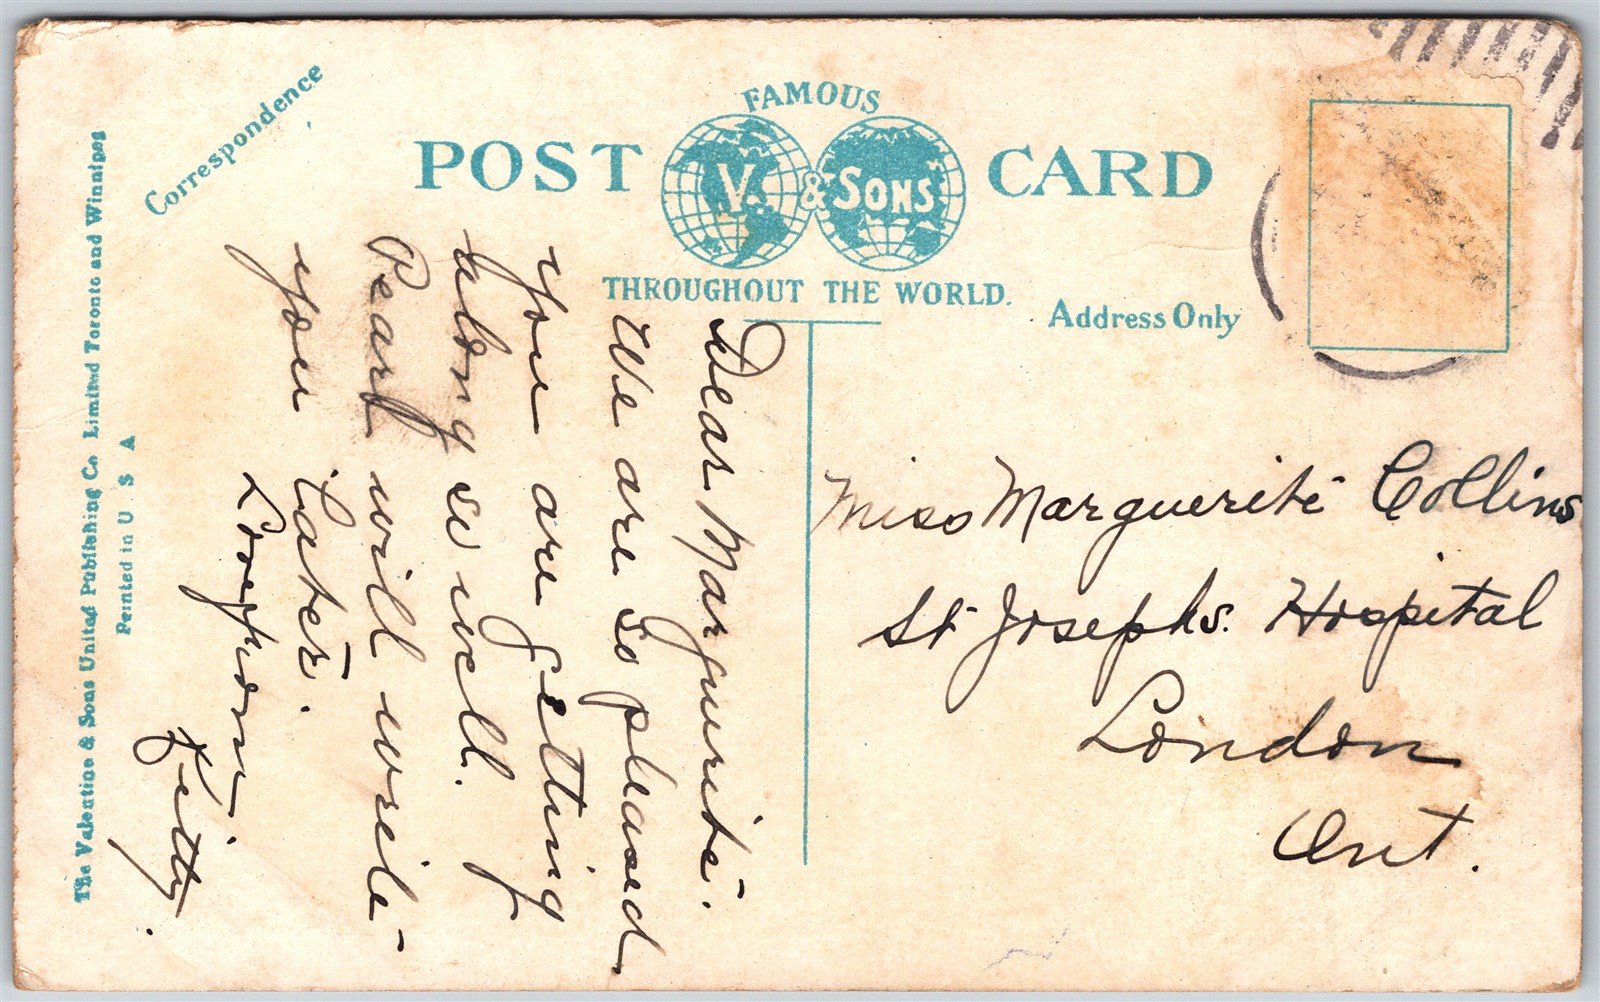 FAMOUS
POST V. & SONS CARD
THROUGHOUT THE WORLD.
Correspondence
Address Only
The Valentine & Sons United Publishing Co Limited Toronto and Winnipeg
Printed in U S A
Dear Marguerite.
We are so pleased
you are getting
along so well.
Pearl will write
you later.
Love from
Kitty.
Miss Marguerite Collins
St Josephs. Hospital
London
Ont.